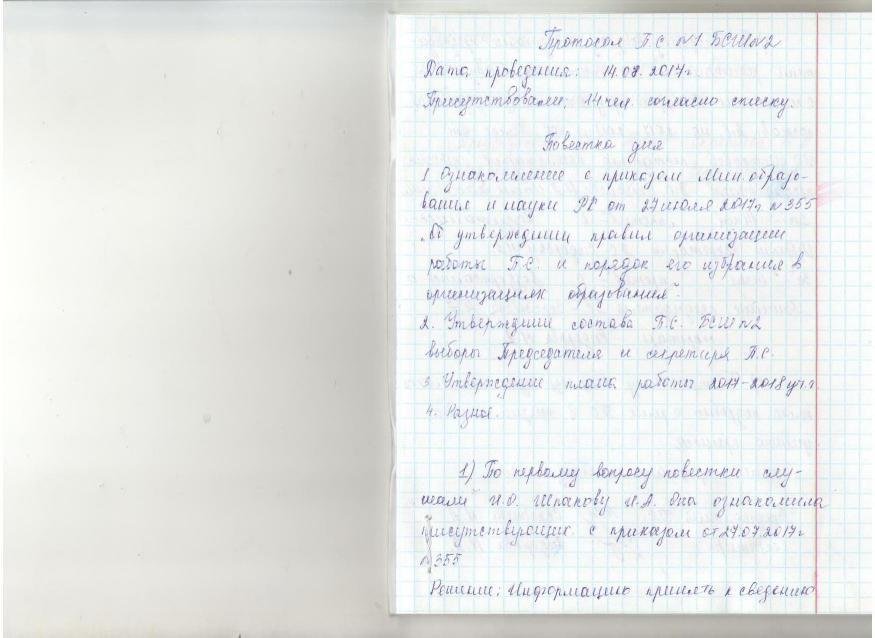 Протокол П.С. №1 БСШ №2
Дата проведения: 14.08.2017г
Присутствовали: 14 чел. согласно списку.
Повестка дня
1 Ознакомление с приказом Мин.образо-
вания и науки РК от 27 июля 2017г. №355
„Об утверждении правил организации
работы П.С. и порядок его избрания в
организациях образования“.
2. Утверждение состава П.С. БСШ №2
выборы Председателя и секретаря П.С.
3 Утверждение плана работы 2017-2018 уч.г.
4. Разное.
1) По первому вопросу повестки слу-
шали И.О. Шпакову И.А. Она ознакомила
присутствующих с приказом от 27.07.2017г
№355
Решение: Информацию принять к сведению